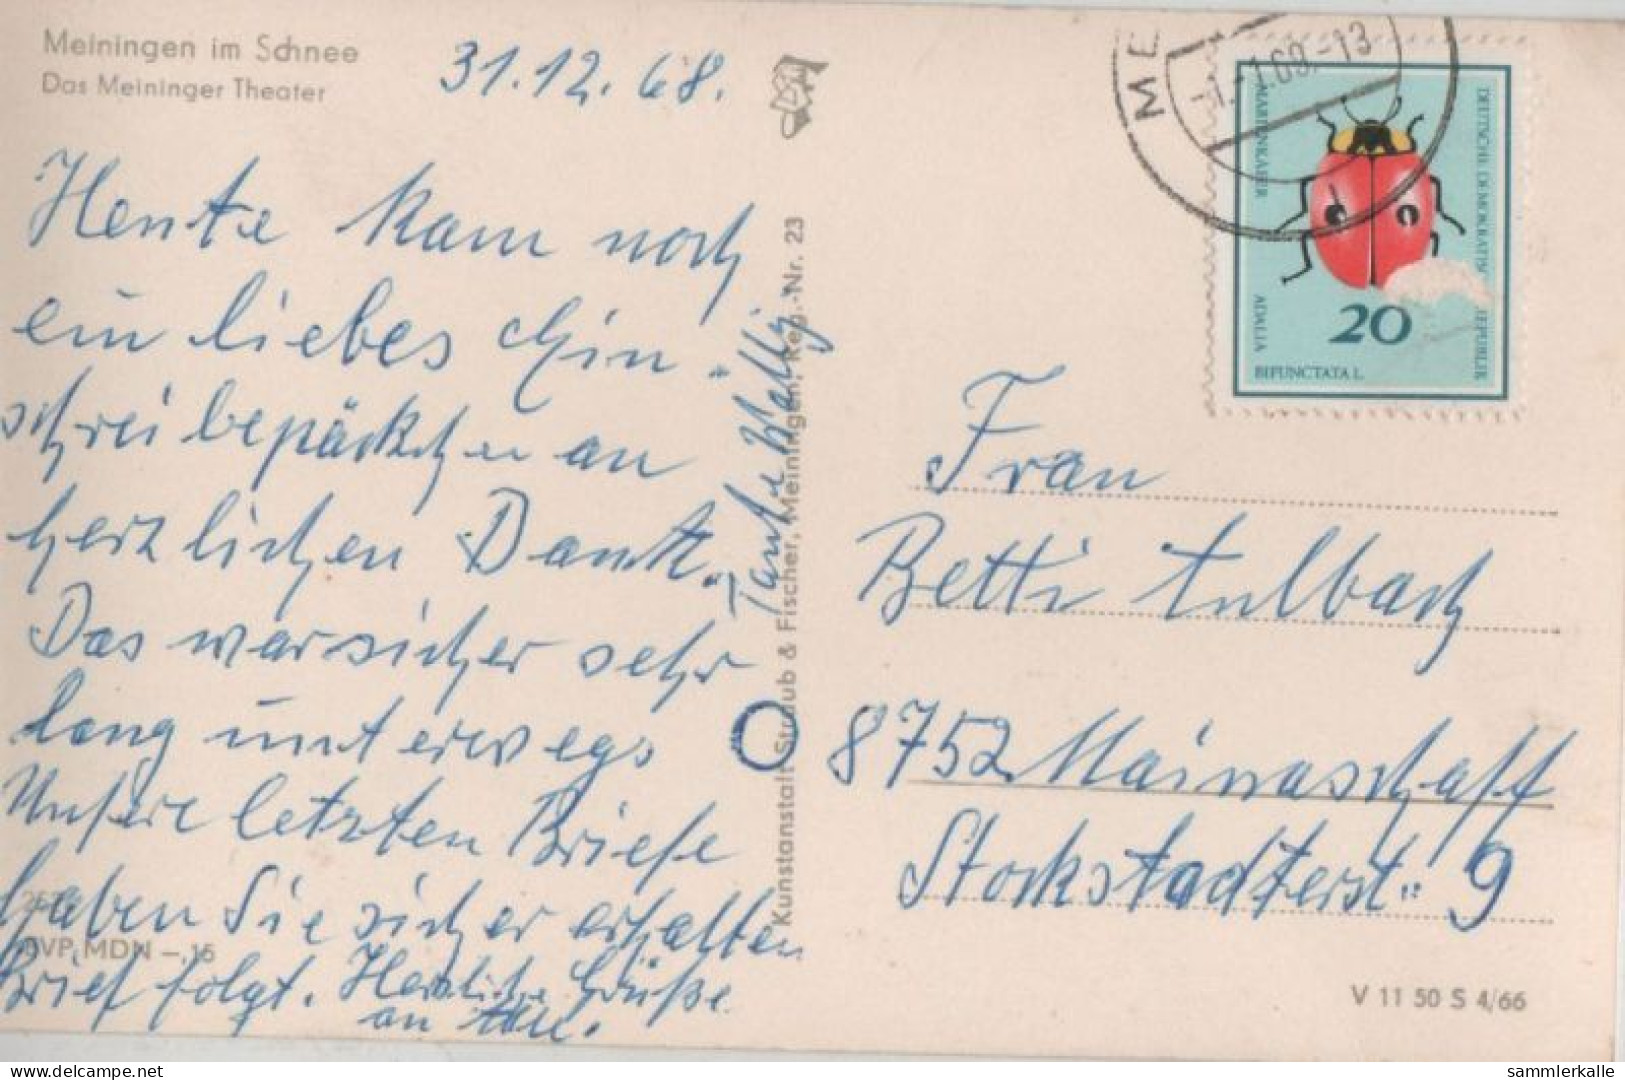 Meiningen im Schnee
Das Meininger Theater
31.12.68.
Heute kam noch
ein liebes Ein-
schreibepäckchen an
herzlichen Dank.
Das war sicher sehr
lang unterwegs
Unsere letzten Briefe
haben Sie sicher erhalten
Brief folgt. Herzliche Grüße
an alle.
Tante
Kunstanstalt Straub & Fischer, Meiningen, Reg.-Nr. 23
EVP MDN -,15
ME
1.-1.69.-13
MARIENKÄFER
DEUTSCHE DEMOKRATISCHE REPUBLIK
ADALIA
BIPUNCTATA L.
20
Frau
Betti
8752 Mainaschaff
Stockstadterstr. 9
V 11 50 S 4/66
delcampe.net
sammlerkalle